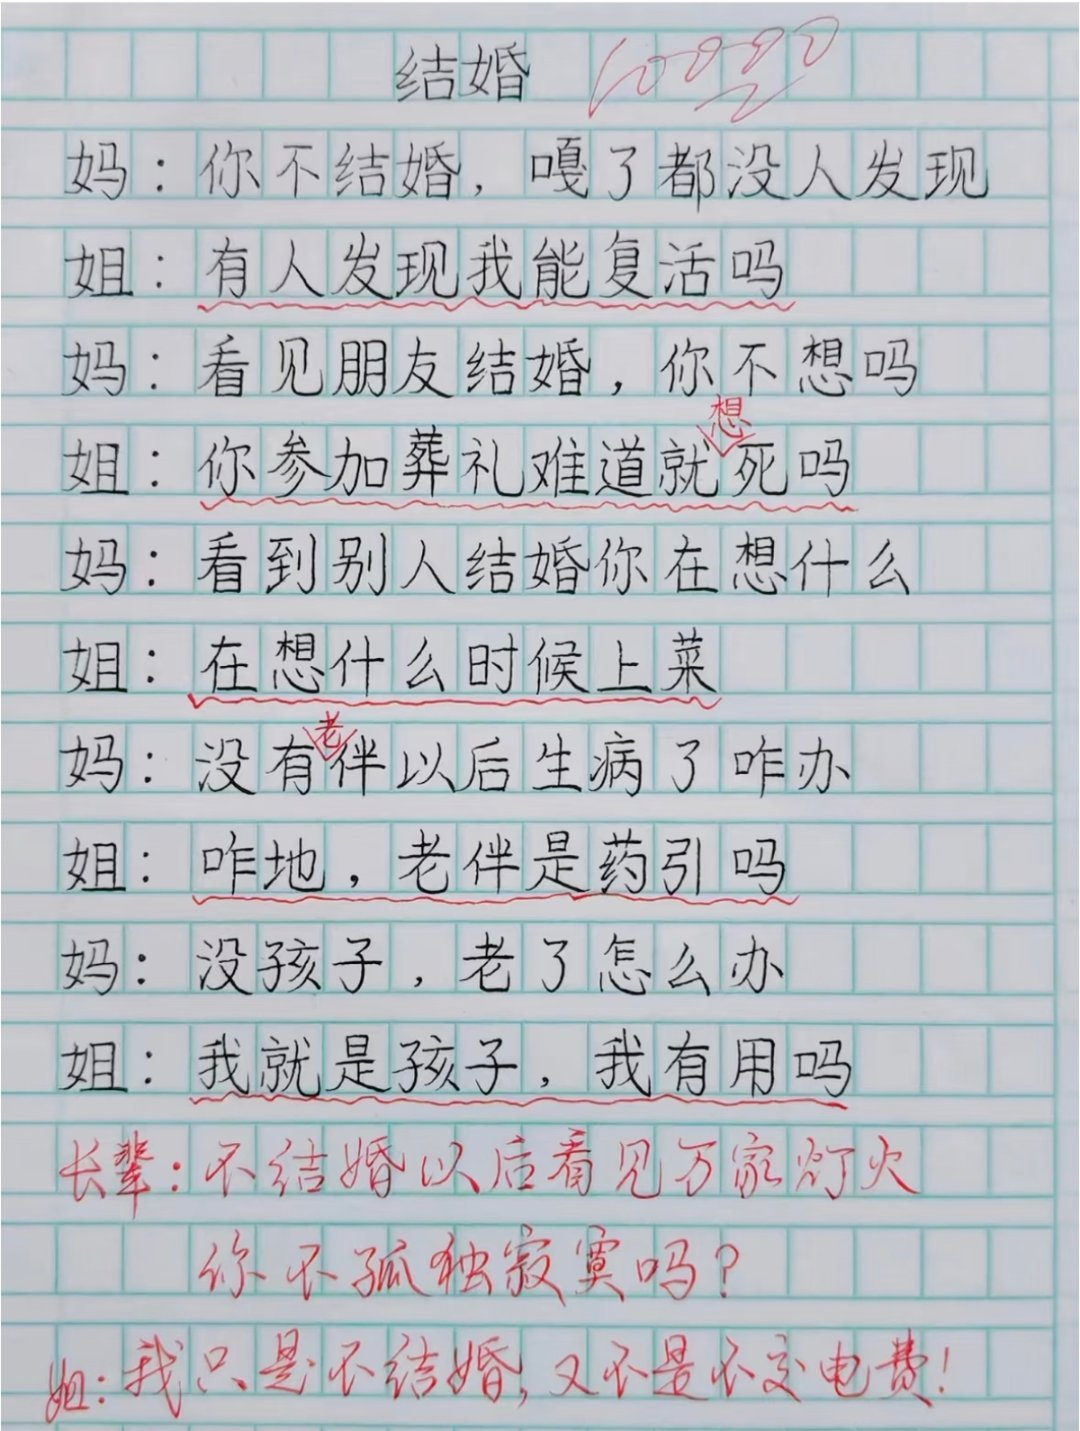 结婚 10000
妈：你不结婚，嘎了都没人发现
姐：有人发现我能复活吗
妈：看见朋友结婚，你不想吗
姐：你参加葬礼难道就想死吗
妈：看到别人结婚你在想什么
姐：在想什么时候上菜
妈：没有老伴以后生病了咋办
姐：咋地，老伴是药引吗
妈：没孩子，老了怎么办
姐：我就是孩子，我有用吗
长辈：不结婚以后看见万家灯火
你不孤独寂寞吗？
姐：我只是不结婚，又不是不交电费！